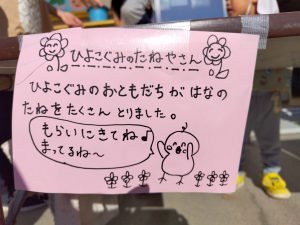 ひよこぐみのたねやさん
ひよこぐみのおともだちが はなの
たねをたくさん とりました。
もらいにきてね♪
まってるね～